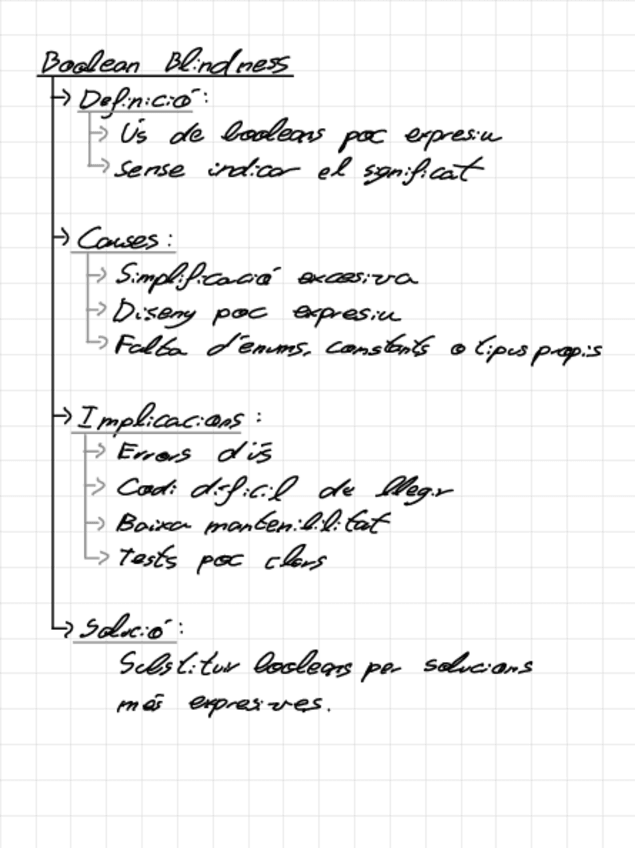 Boolean Blindness
→ Definició:
→ Ús de booleans poc expresiu
→ Sense indicar el significat
→ Causes:
→ Simplificació excesiva
→ Diseny poc expresiu
→ Falta d'enums, constants o tipus propis
→ Implicacions:
→ Errors d'ús
→ Codi dificil de llegir
→ Baixa mantenibilitat
→ Tests poc clars
→ Solució:
Substituir booleans per solucions
més expresives.